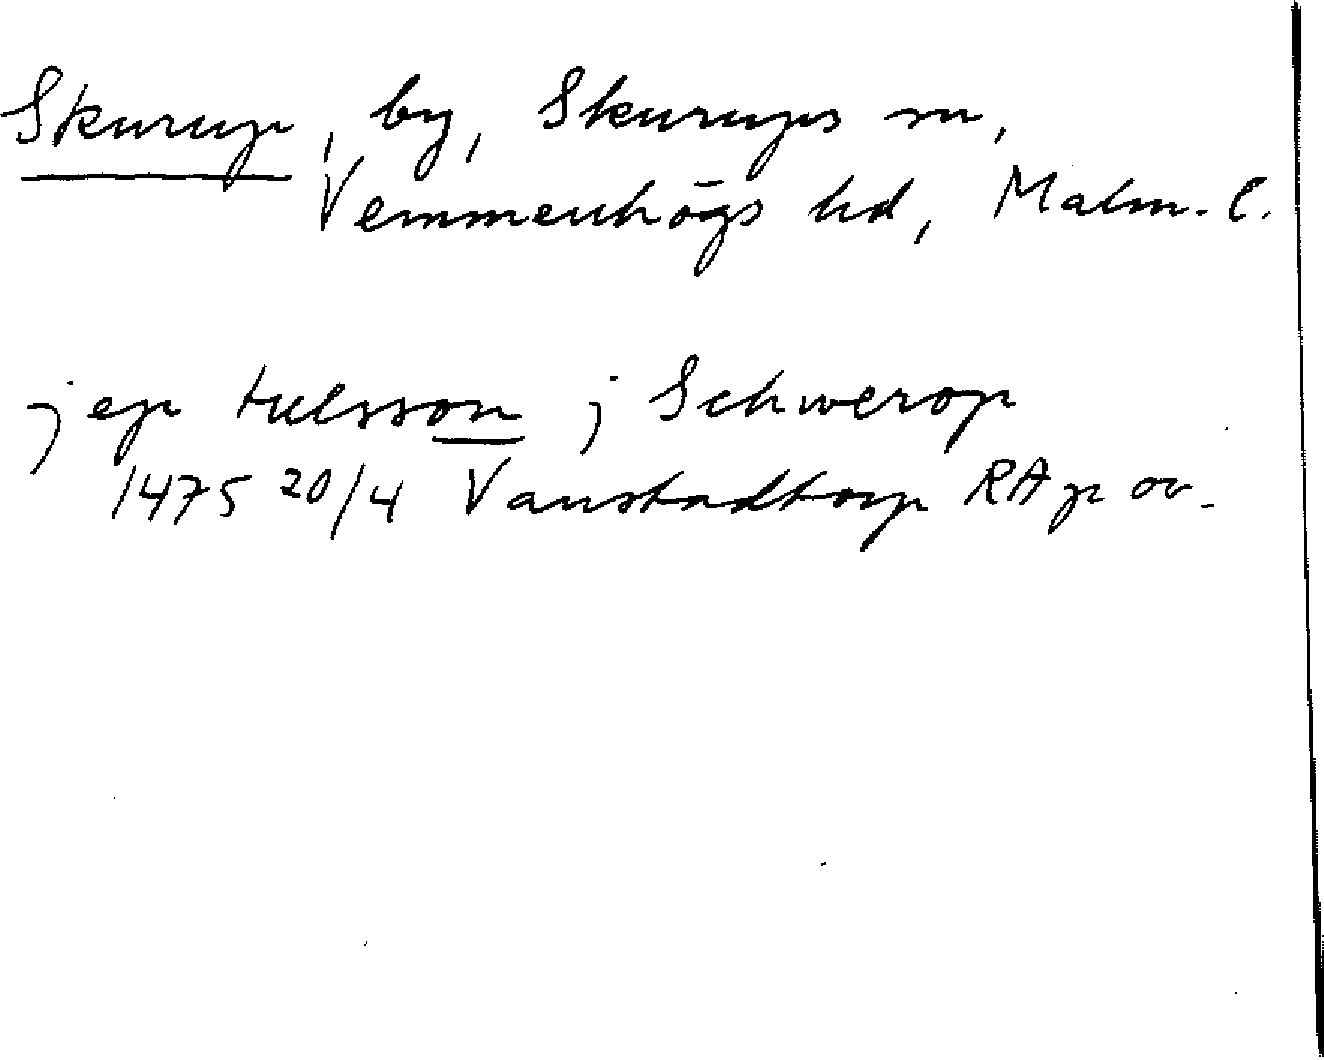 Skurup, by, Skurups sn,
Vemmenhögs hd, Malm. l.
jep tuesson j Schwerop
1475 20/4 Vanstadtorp RAp or.